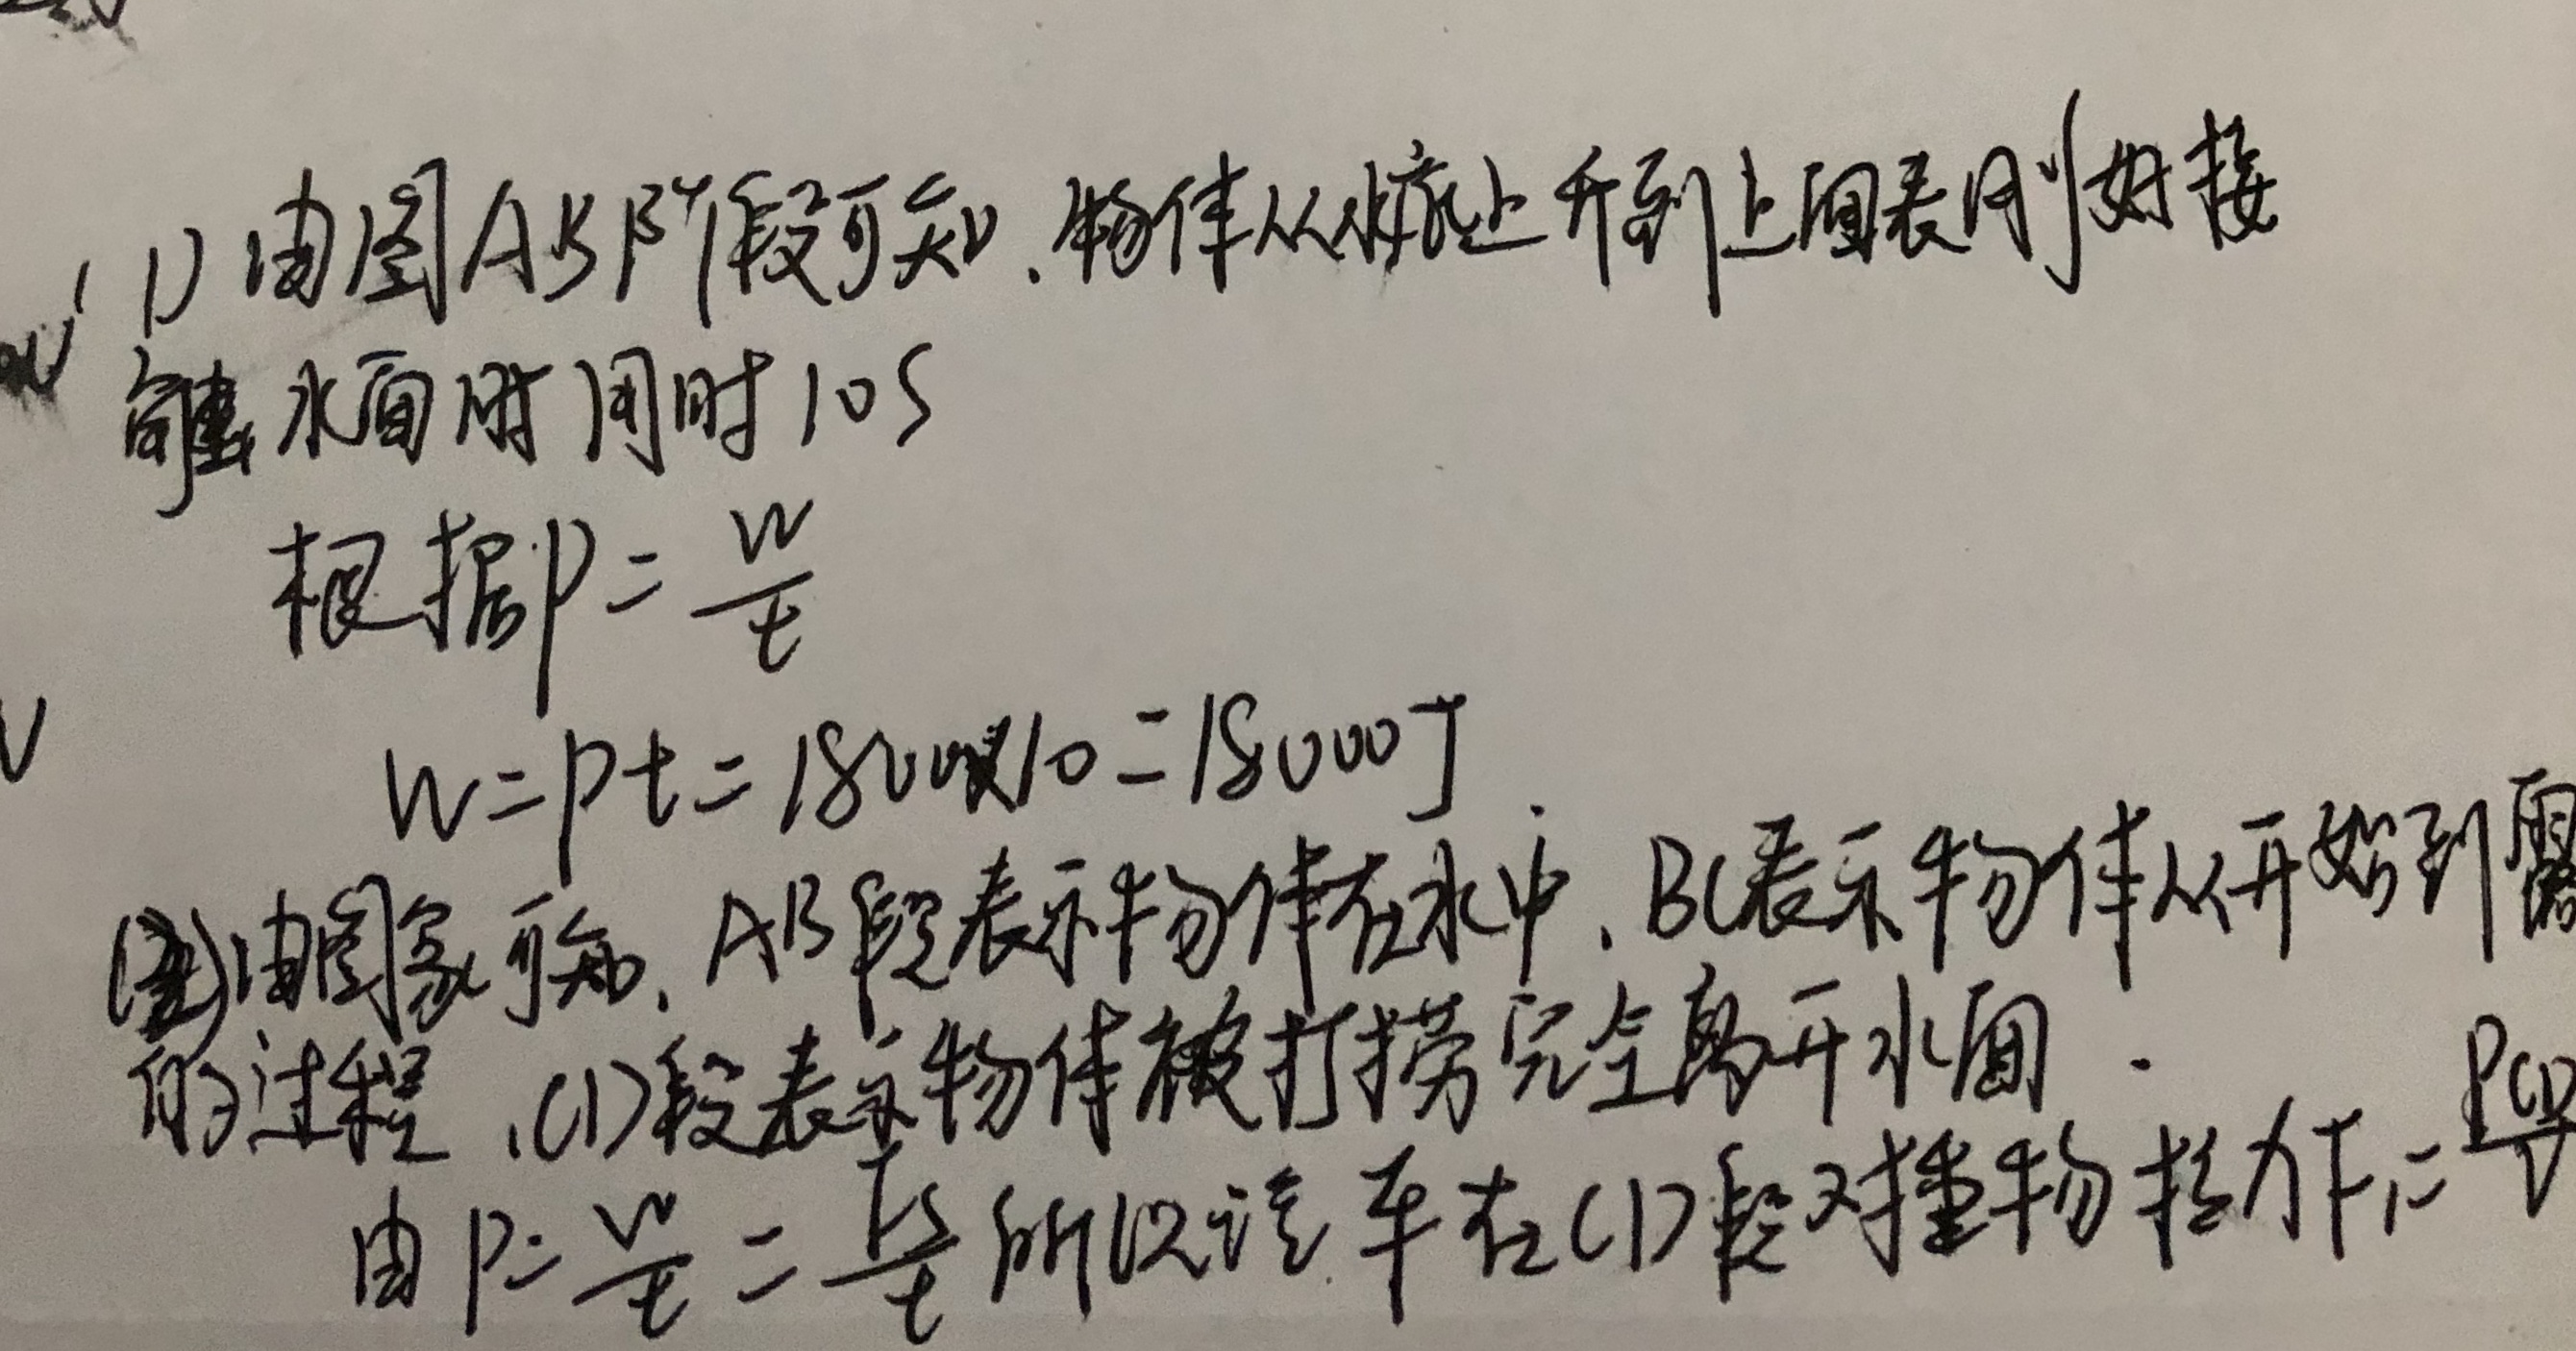 (1)由图AB阶段可知.物体从水底上升到上面表刚好接
触水面时间时10S
根据P=W/t
W=Pt=1800×10=18000J.
(2)由图象可知,AB段表示物体在水中,BC表示物体从开始到露
的过程,CD段表示物体被打捞完全离开水面.
由P=W/t=Fs/t所以汽车在CD段对重物拉力F1=PCD/V